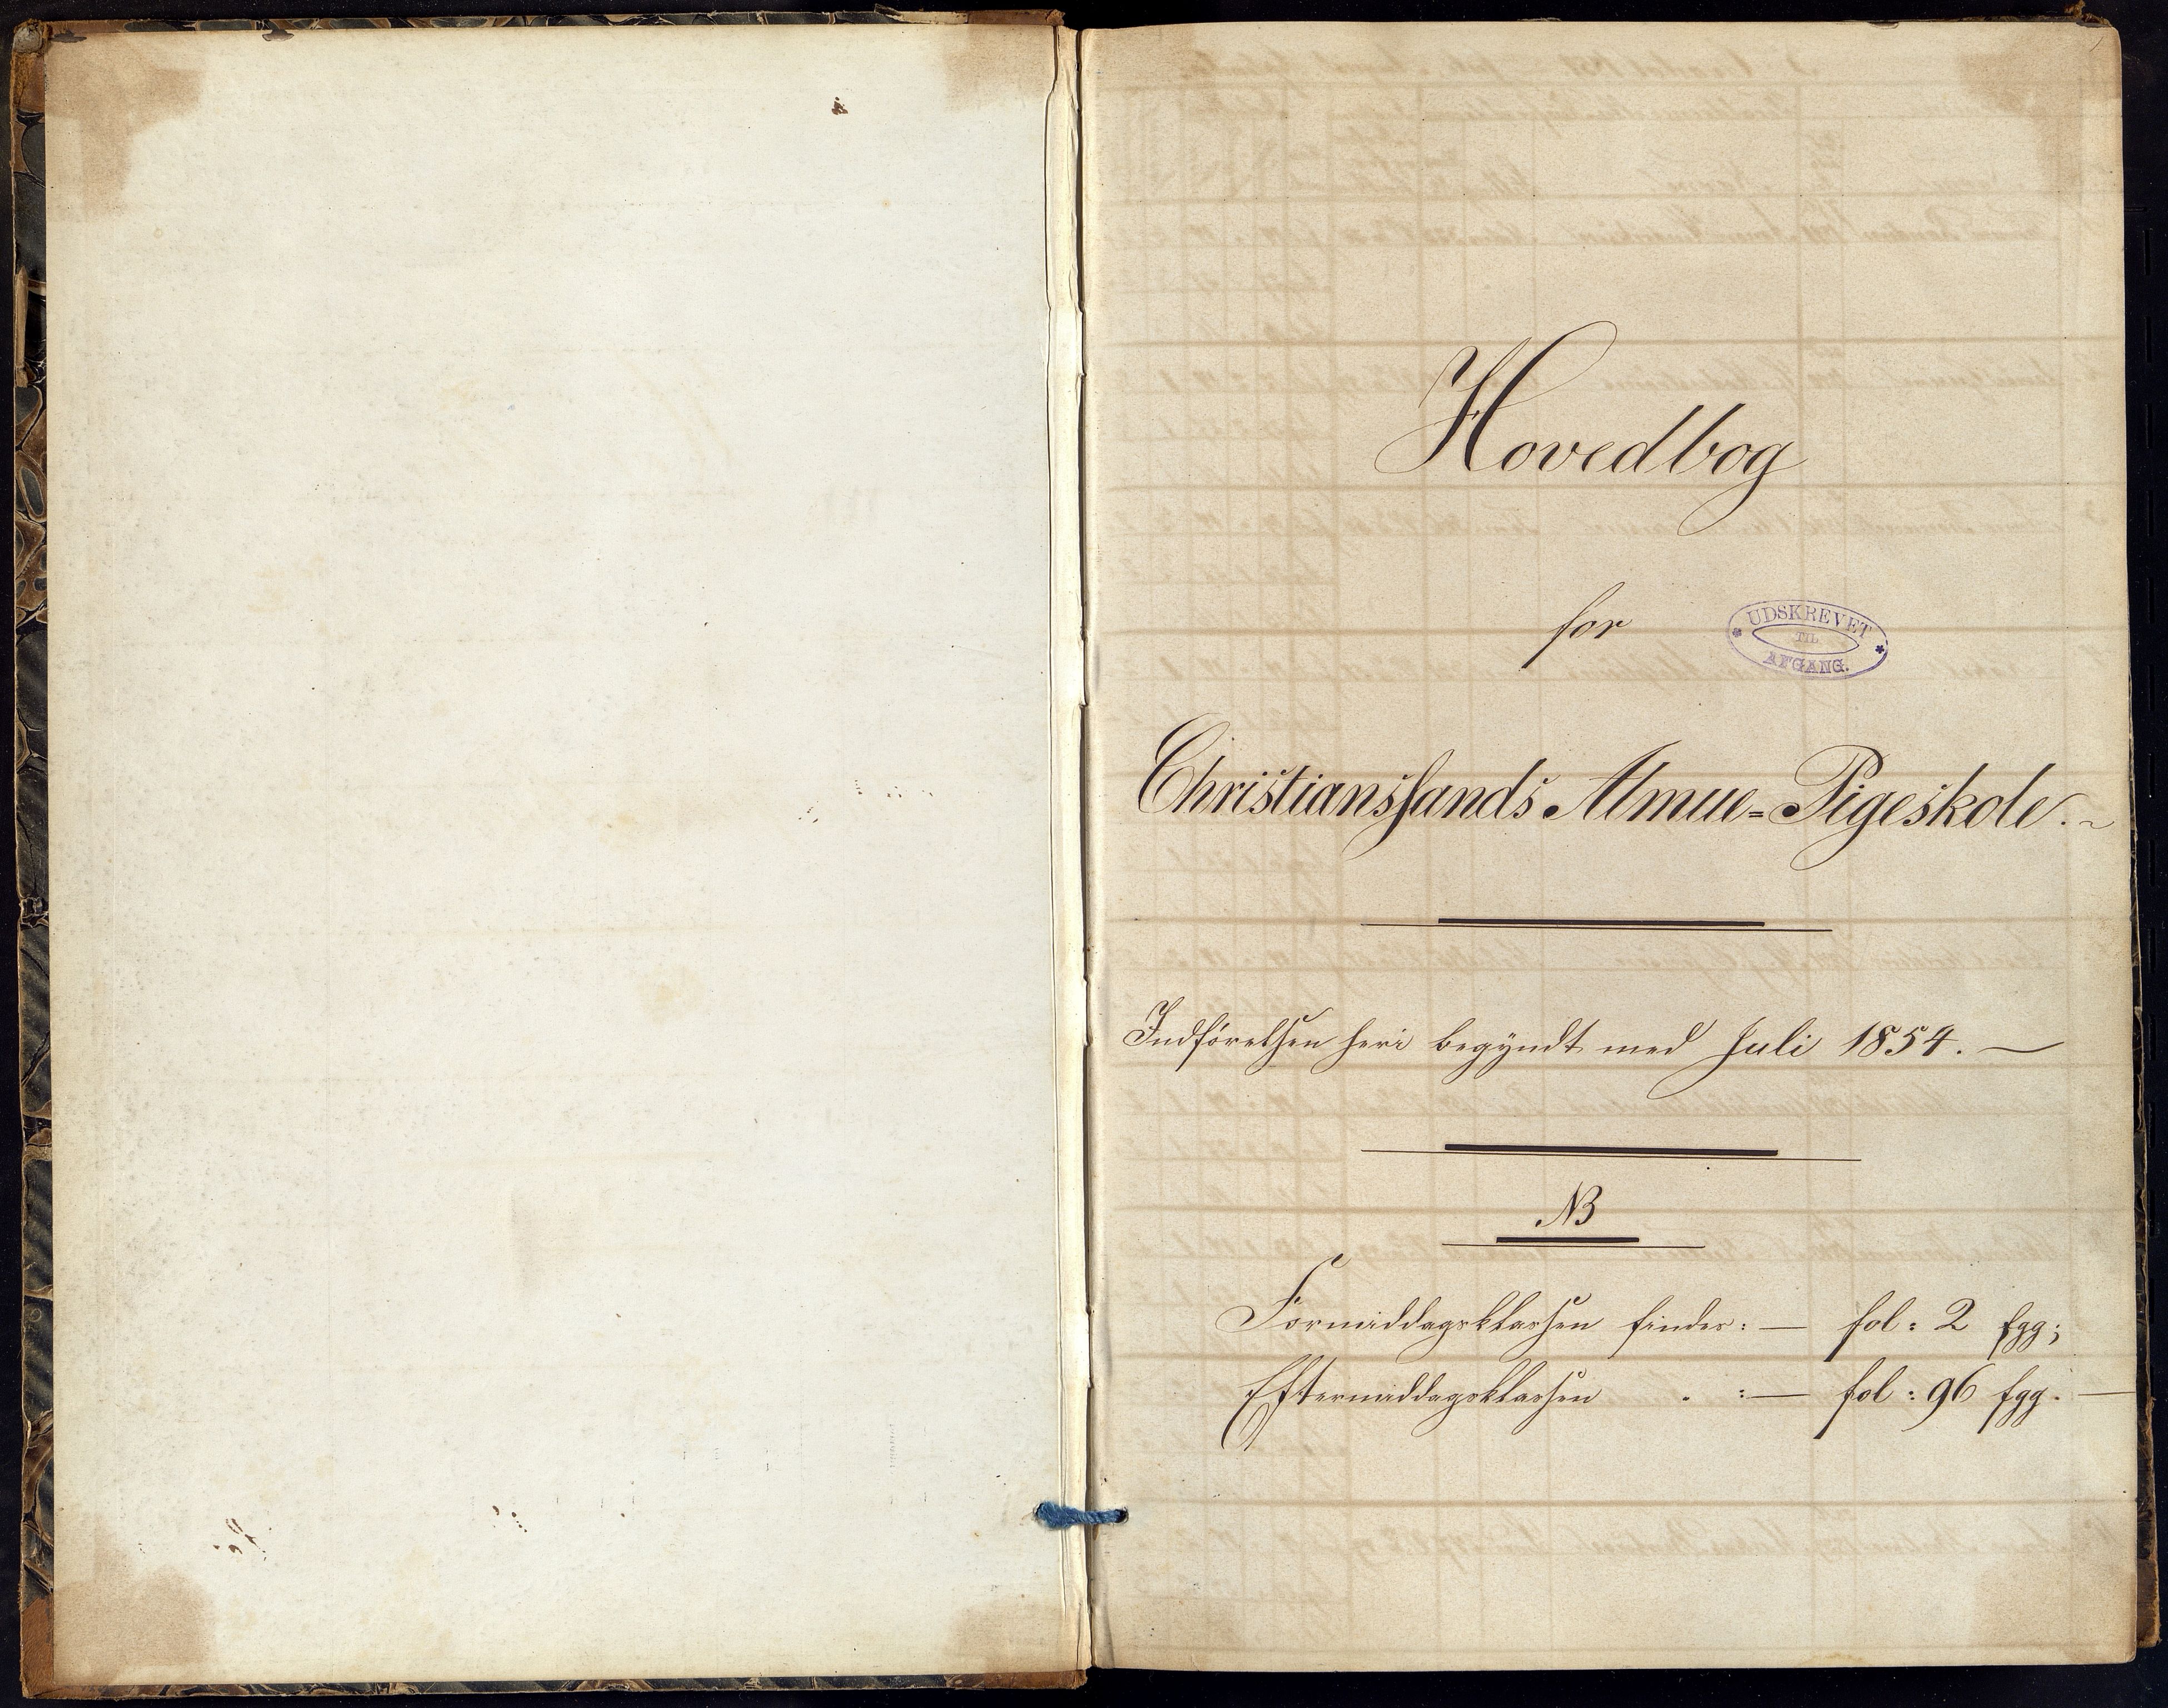 Hovedbog
for
UDSKREVET
TIL
AFGANG.
Christianssands Almue-Pigeskole.
Indførelsen heri begyndt med Juli 1854. —
NB
Formiddagsklassen findes: — fol: 2 fgg;
Eftermiddagsklassen . : — fol: 96 fgg. —